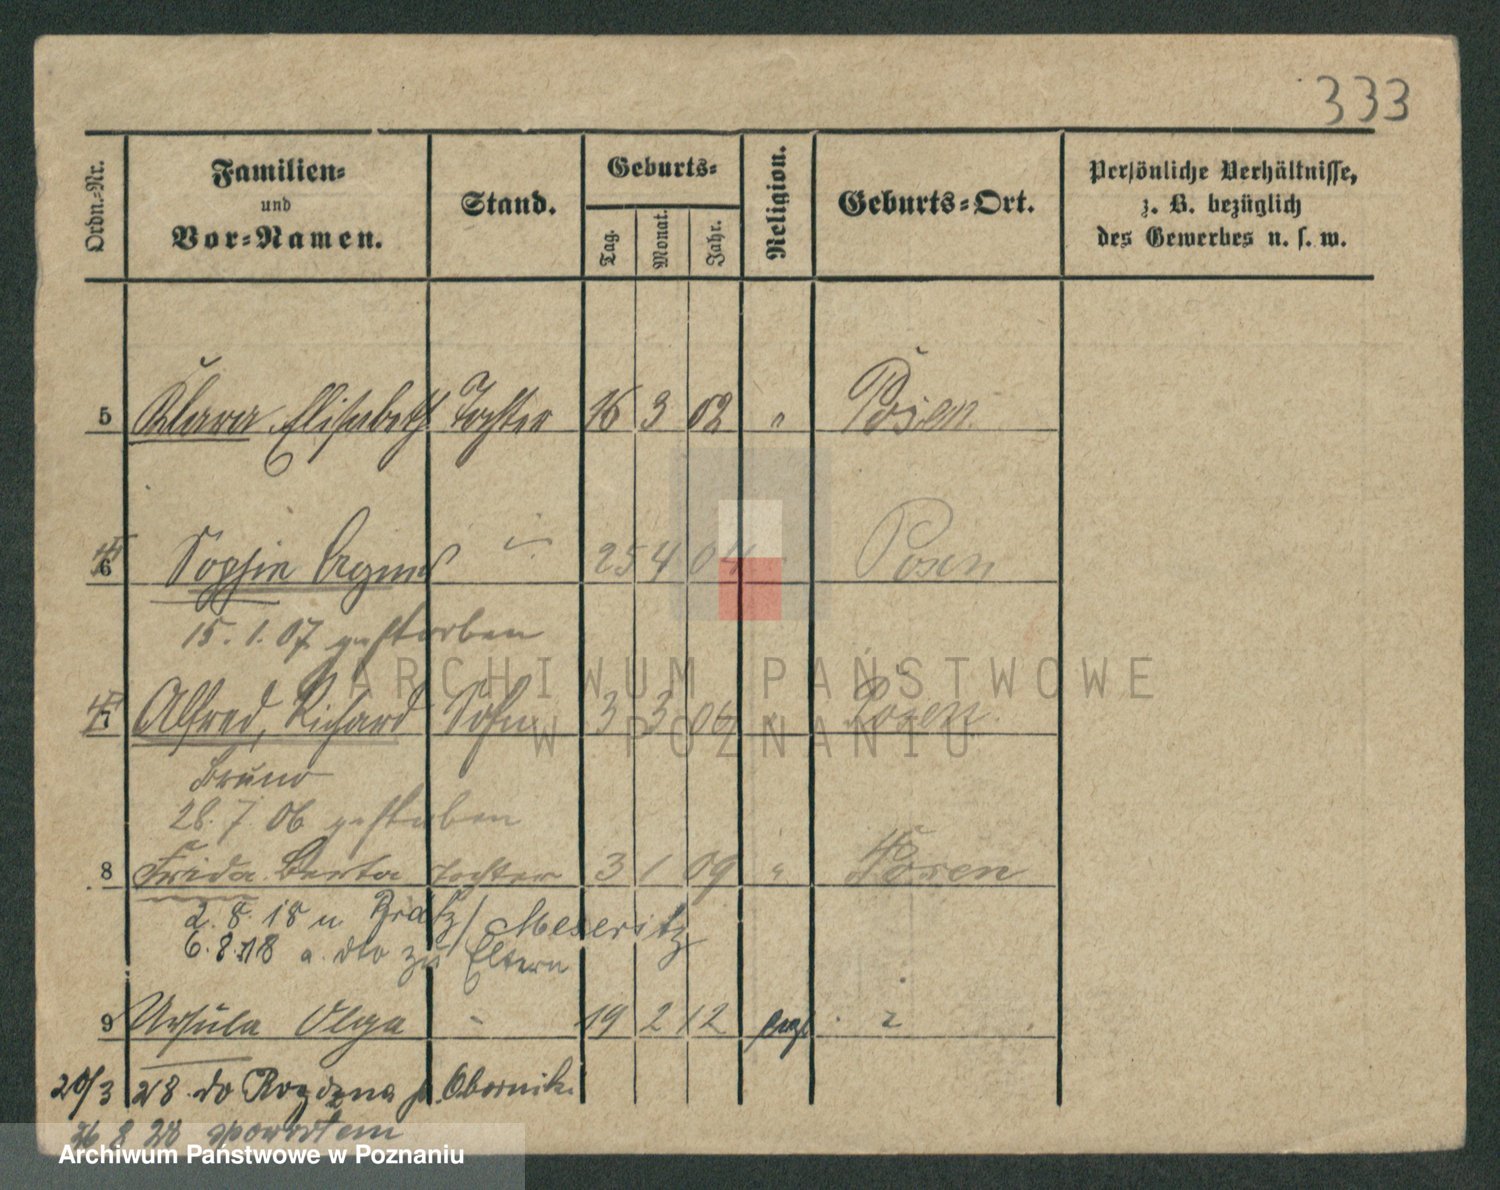 333
Ordn.-Nr.
Familien-
und
Vor-Namen.
Stand.
Geburts-
Tag.
Monat.
Jahr.
Religion.
Geburts-Ort.
Persönliche Verhältnisse,
z. B. bezüglich
des Gewerbes u. s. w.
5 Klara Elisabeth Tochter 16 3 02 " Posen
6 Sophie Agnes 25 4 04 Posen
15. 1. 07 gestorben
7 Alfred, Richard Sohn 3 3 06 " Posen
Bruno
28. 7. 06 gestorben
8 Frida Berta Tochter 3 1 09 " Posen
2. 8. 18 n Meseritz
6. 8. 18 a. dto zu Eltern
9 Ursula Olga 19 2 12
20/3 28 do Rozdzna p. Obornik
8 28 spowrotem
ARCHIWUM PAŃSTWOWE
W POZNANIU
Archiwum Państwowe w Poznaniu